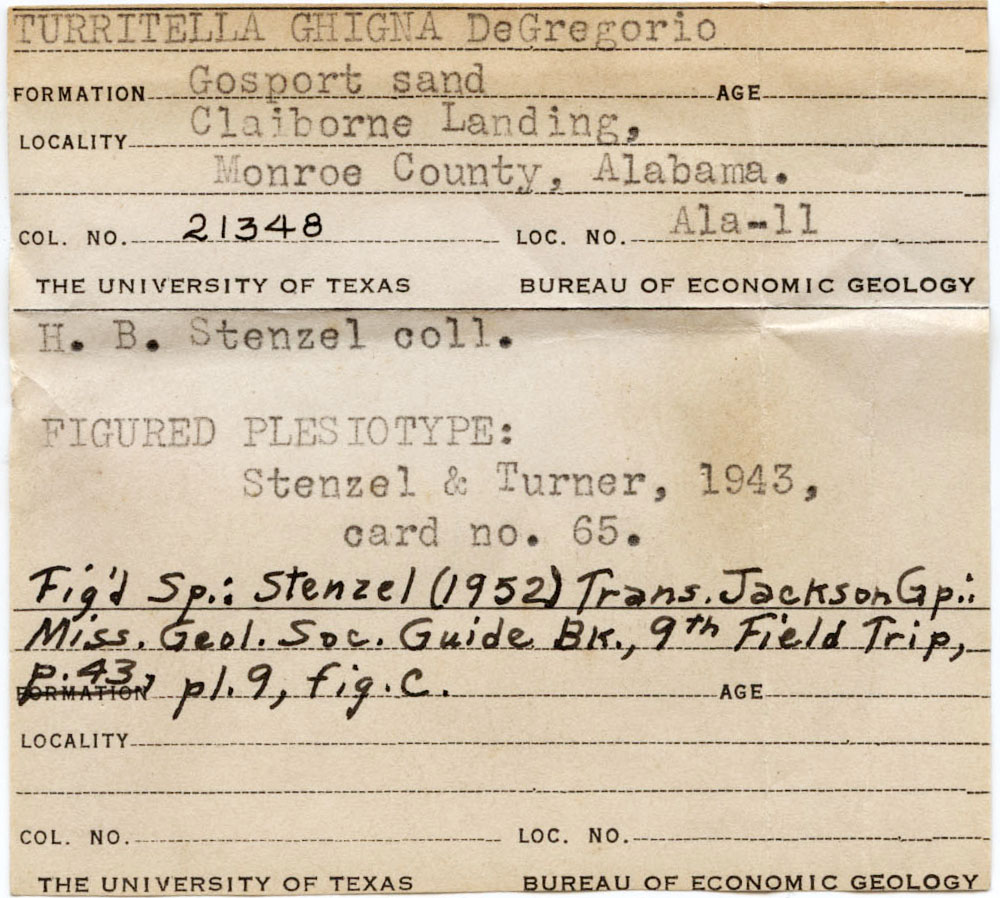 TURRITELLA GHIGNA DeGregorio
FORMATION Gosport sand AGE
LOCALITY Claiborne Landing,
Monroe County, Alabama.
COL. NO. 21348 LOC. NO. Ala-11
THE UNIVERSITY OF TEXAS BUREAU OF ECONOMIC GEOLOGY
H. B. Stenzel coll.
FIGURED PLESIOTYPE:
Stenzel & Turner, 1943,
card no. 65.
Fig'd Sp.: Stenzel (1952) Trans. Jackson Gp.:
Miss. Geol. Soc. Guide Bk., 9th Field Trip,
p. 43, pl. 9, fig. C.
FORMATION AGE
LOCALITY
COL. NO. LOC. NO.
THE UNIVERSITY OF TEXAS BUREAU OF ECONOMIC GEOLOGY